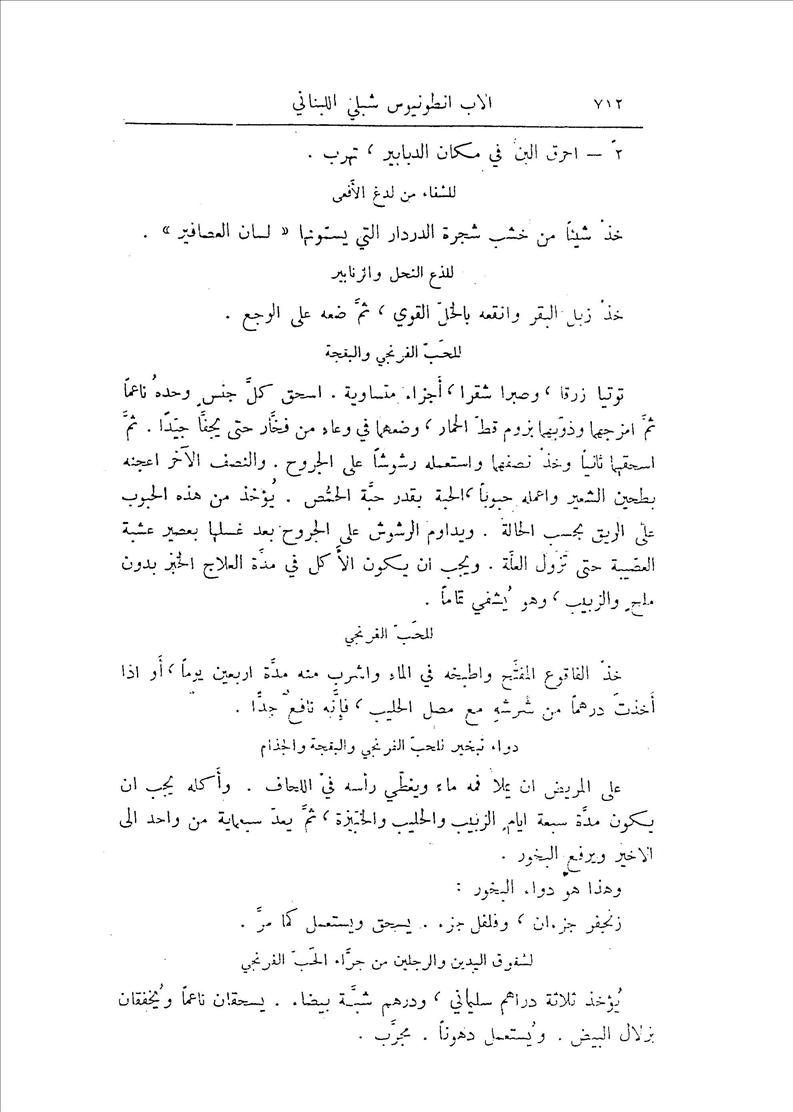 ٧١٢ الاب انطونيوس شبلي اللبناني
٢ً – احرق البنّ في مكان الدبابير ، تهرب .
للشفاء من لدغ الأفعى
خذْ شيئاً من خشب شجرة الدردار التي يسمّونها « لسان العصافير » .
للذع النحل والزنابير
خذْ زبل البقر وانقعه بالخلّ القوي ، ثمَّ ضعه على الوجع .
للحَبّ الفرنجي والبقجة
توتيا زرقا ، وصبرا شقرا ، أجزاء متساوية . اسحق كلَّ جنس وحدهُ ناعماً
ثمَّ امزجها وذوّبها بزوم قطّ الحمار ، وضعها في وعاء من فخَّار حتى يجفَّا جيّدًا . ثمَّ
اسحقها ثانياً وخذْ نصفها واستعمله رشوشاً على الجروح . والنصف الآخر اعجنه
بطحين الشعير واعمله حبوباً ، الحبة بقدر حبَّة الحمّص . يُؤخذ من هذه الحبوب
على الريق بحسب الحالة . ويداوم الرشوش على الجروح بعد غسلها بعصير عشبة
العصّيبة حتى تزول العلَّة . ويجب ان يكون الأكل في مدَّة العلاج الخبز بدون
ملحٍ والزبيب ، وهو يُشفي تماماً .
للحَبّ الفرنجي
خذْ الفاقوع المفتَّح واطبخه في الماء واشرب منه مدَّة اربعين يوماً ، أو اذا
أخذتَ درهماً من شرشهِ مع مصل الحليب ، فإنَّه نافعٌ جدًّا .
دواء تبخير للحبّ الفرنجي والبقجة والجذام
على المريض ان يملأ فمه ماء ويغطّي رأسه في اللحاف . وأكله يجب ان
يكون مدَّة سبعة ايامٍ الزبيب والحليب والخبّيزة ، ثمَّ يعدّ سبعماية من واحد الى
الاخير ويرفع البخور .
وهذا هو دواء البخور :
زنجفر جزءان ، وفلفل جزء . يسحق ويستعمل كما مرَّ .
لشقوق اليدين والرجلين من جرَّاء الحَبّ الفرنجي
يُؤخذ ثلاثة دراهم سليماني ، ودرهم شبَّة بيضاء . يسحقان ناعماً ويُخفقان
بزلال البيض . ويُستعمل دهوناً . مجرَّب .